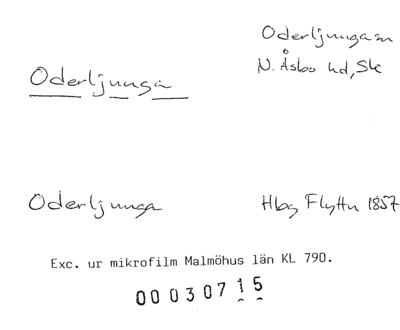 Oderljunga sn
Oderljunga
N. Åsbo hd, Sk
Oderljunga
Hbg Flyttn 1857
Exc. ur mikrofilm Malmöhus län KL 790.
00030715